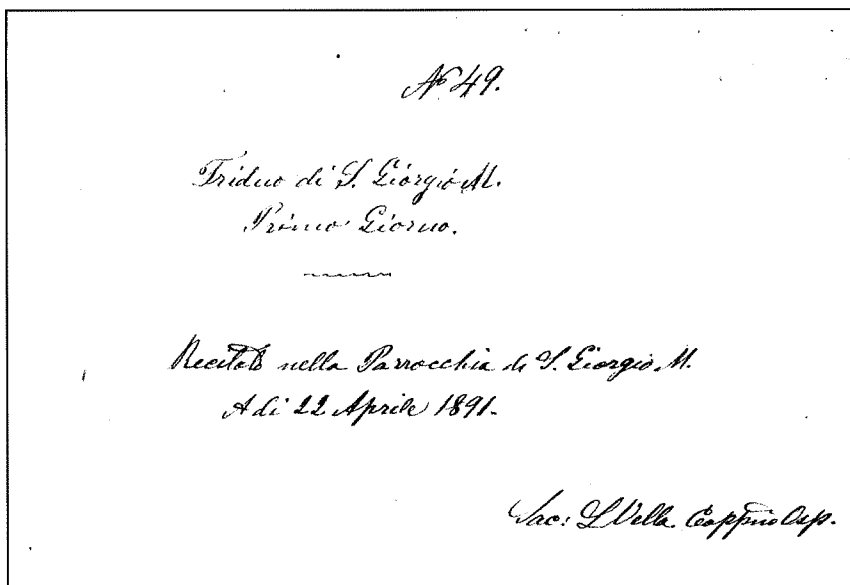 No 49.
Triduo di S. Giorgio M.
Primo Giorno.
Recitato nella Parrocchia di S. Giorgio M.
A di 22 Aprile 1891.
Sac: L Vella Capp̃no Osp.